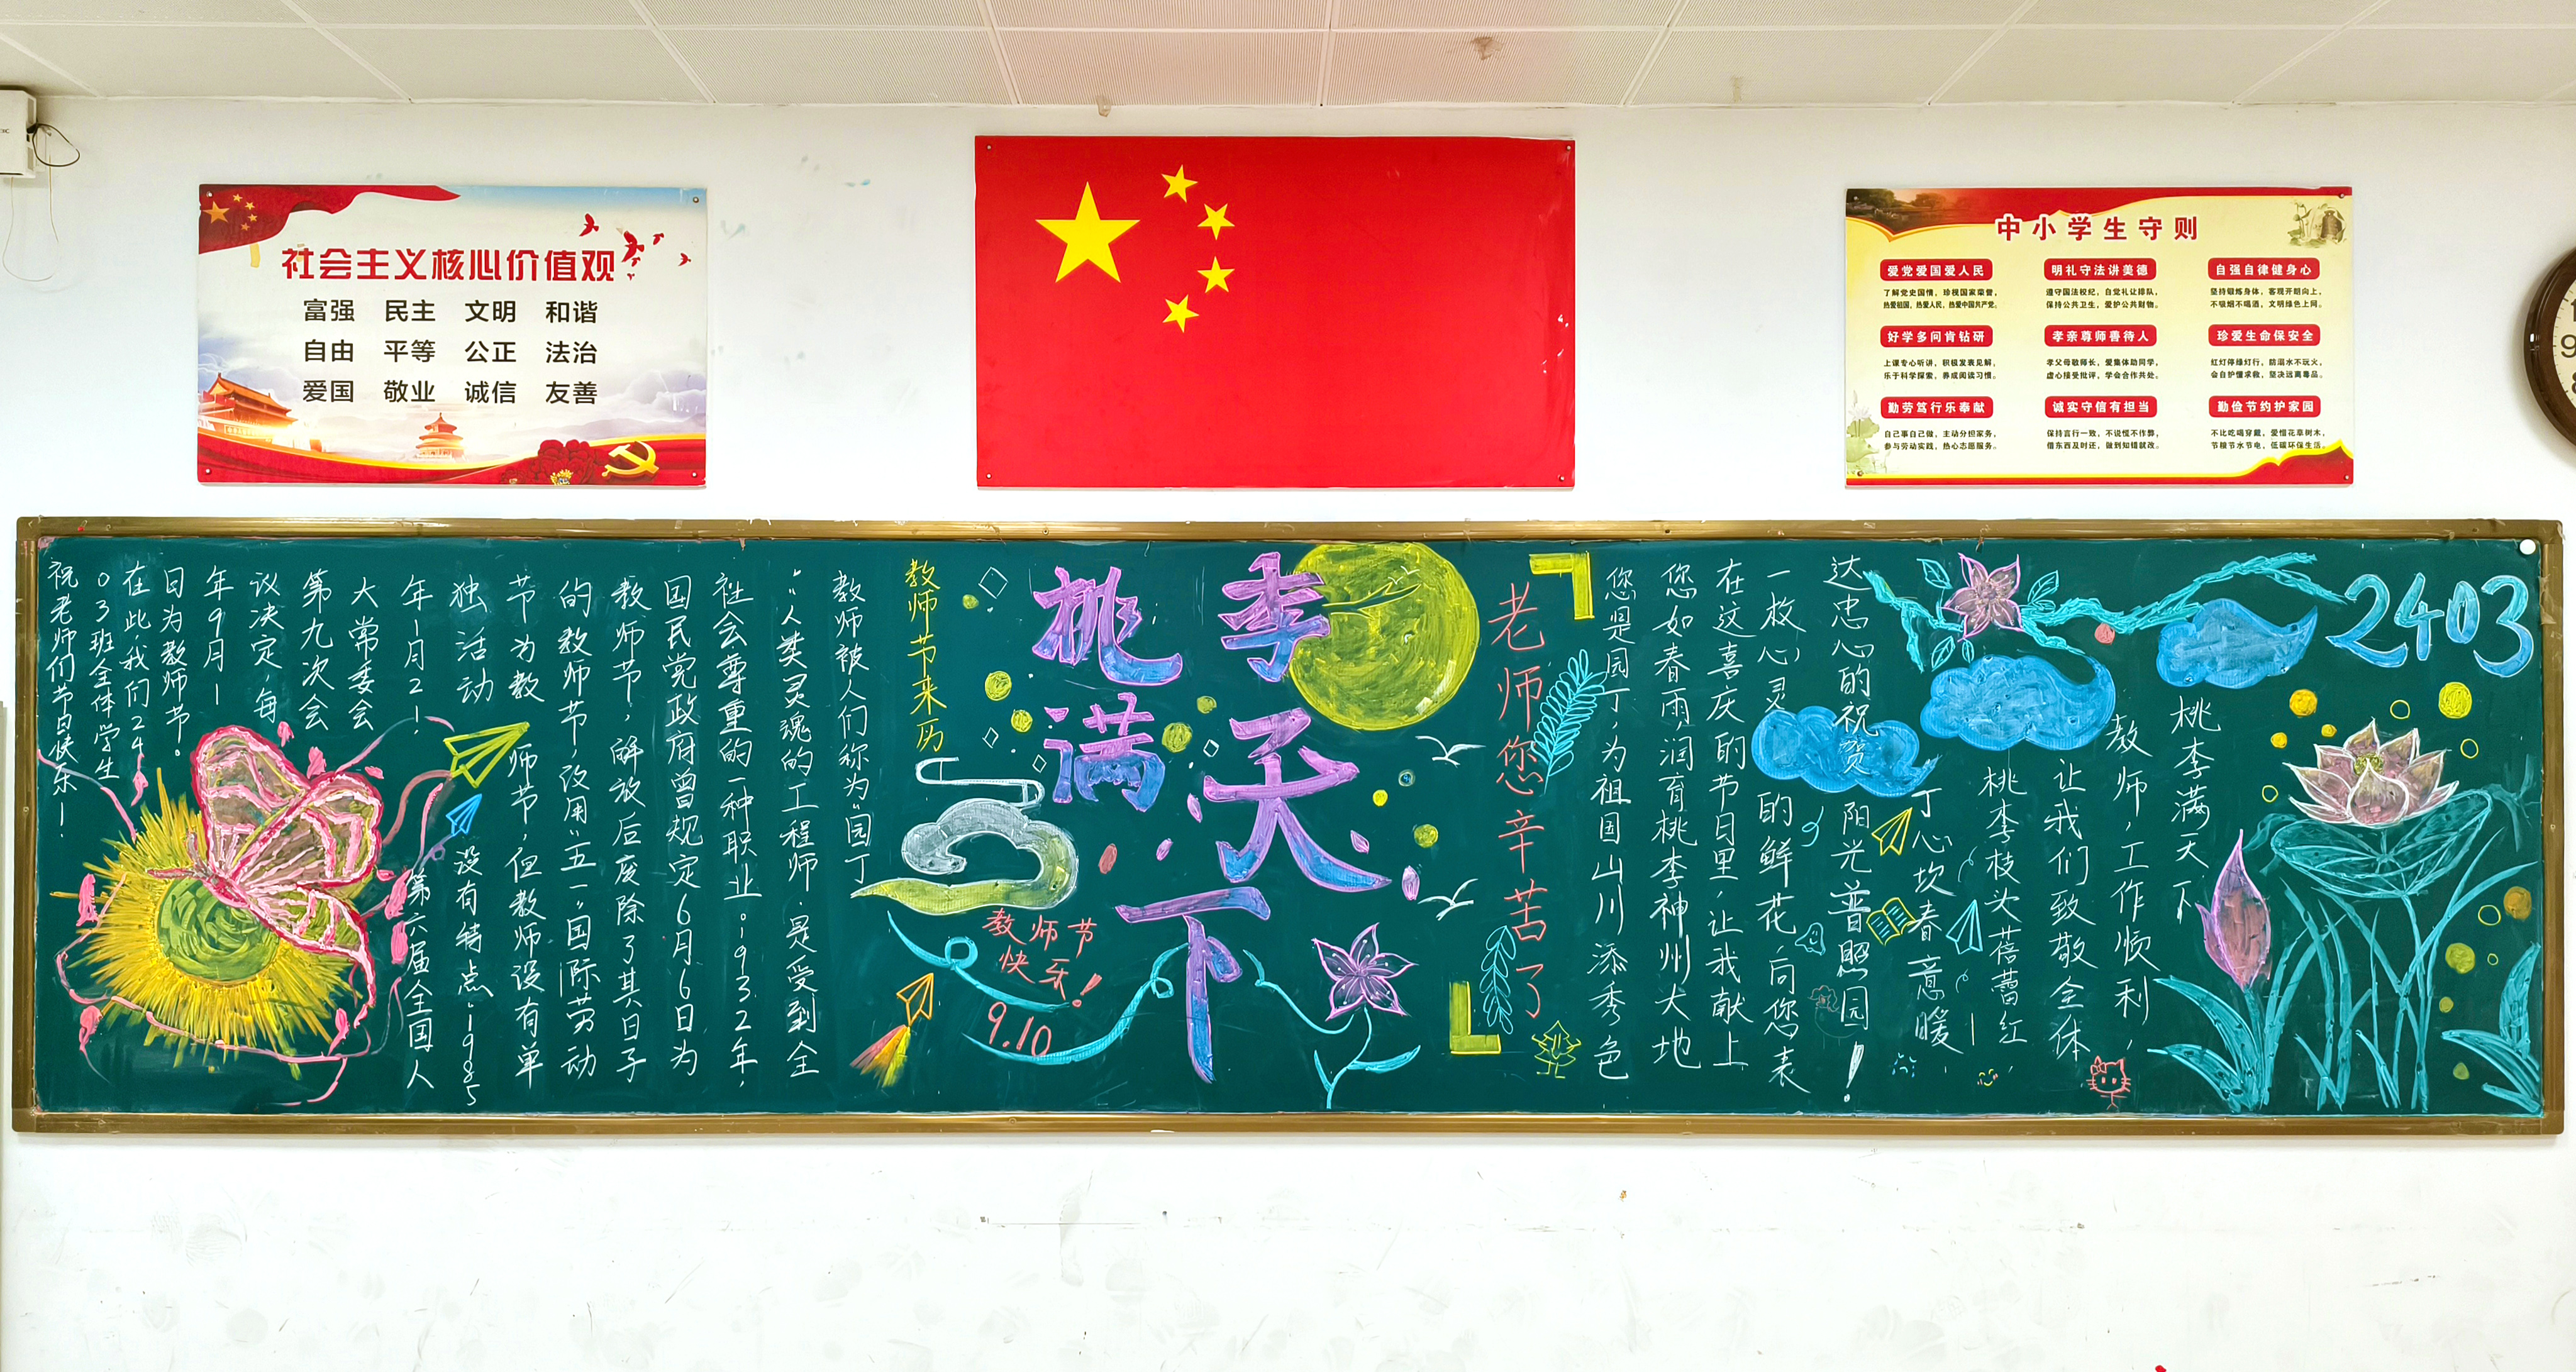 社会主义核心价值观
富强 民主 文明 和谐
自由 平等 公正 法治
爱国 敬业 诚信 友善
中小学生守则
爱党爱国爱人民
了解党史国情，珍视国家荣誉，
热爱祖国，热爱人民，热爱中国共产党。
明礼守法讲美德
遵守国法校纪，自觉礼让排队，
保持公共卫生，爱护公共财物。
自强自律健身心
坚持锻炼身体，乐观开朗向上，
不吸烟不喝酒，文明绿色上网。
好学多问肯钻研
上课专心听讲，积极发表见解，
乐于科学探索，养成阅读习惯。
孝亲尊师善待人
孝父母敬师长，爱集体助同学，
虚心接受批评，学会合作共处。
珍爱生命保安全
红灯停绿灯行，防溺水不玩火，
会自护懂求救，坚决远离毒品。
勤劳笃行乐奉献
自己事自己做，主动分担家务，
参与劳动实践，热心志愿服务。
诚实守信有担当
保持言行一致，不说慌不作弊，
借东西及时还，做到知错就改。
勤俭节约护家园
不比吃喝穿戴，爱惜花草树木，
节粮节水节电，低碳环保生活。
2403
桃李满天下
教师，工作顺利，
让我们致敬全体
桃李枝头蓓蕾红
丁心坎春意暖
阳光普照园！
达忠心的祝贺
一枚心灵的鲜花，向您表
在这喜庆的节日里，让我献上
您如春雨，润育桃李神州大地
您是园丁，为祖国山川添秀色
老师您辛苦了
李天下
桃满
教师节
快乐！
9.10
教师节来历
教师被人们称为"园丁
"、"人类灵魂的工程师，是受到全
社会尊重的一种职业。1932年，
国民党政府曾规定6月6日为
教师节，解放后废除了其日子
的教师节，改用"五一"国际劳动
节为教师节，但教师没有单
独活动没有特点。1985
年1月21第六届全国人
大常委会
第九次会
议决定，每
年9月1
日为教师节。
在此，我们24
03班全体学生
祝老师们节日快乐！